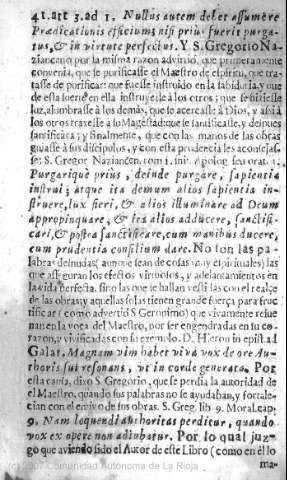 41. art 3. ad 1. Nullus autem debet assumere
Prædicationis officium, nisi prius fuerit purga-
tus, & in virtute perfectus. Y S. Gregorio Na-
zianzeno por la misma razon advirtiò, que primeramente
convenia, que se purificasse el Maestro de espiritu, que tra-
tasse de purificar: que fuesse instruido en la sabiduria, y que
de esta suerte en ella instruyesse à los otros; que se hiziesse
luz, alumbrasse à los demàs, que se acercasse à Dios, y assi à
los otros traxesse à su Magestad: que se santificasse, y despues
santificàra; y finalmente, que con las manos de las obras
guiasse à sus discipulos, y con esta prudencia les aconsejas-
se: S. Gregor. Nazianzen. tom. 1. init. Apolog. seu orat. 1.
Purgarique priùs, deinde purgare, sapientia
instrui; atque ita demum alios sapientia in-
struere, lux fieri, & alios illuminare ad Deum
appropinquare, & ita alios adducere, sanctifi-
cari, & postea sanctificare, cum manibus ducere,
cum prudentia consilium dare. No son las pa-
labras desnudas, aunque sean de cosas muy espirituales) las
que asseguran los efectos virtuosos, y adelantamientos en
la vida perfecta, sino las que se hallan vestidas con el realçe
de las obras, y aquellas solas tienen grande fuerça para fruc-
tificar (como advertiò S. Geronimo) que vivamente resue
nan en la voca del Maestro, por ser engendradas en su co-
razon, y vivificadas con su exemplo. D. Hieron in epist. ad
Galat. Magnam vim habet viva vox de ore Au-
thoris sui resonans, vt in corde generata. Por
esta causa, dixo S. Gregorio, que se perdia la autoridad de
el Maestro, quando sus palabras no se ayudaban, y fortale-
cian con el envivo de sus obras. S. Greg. lib. 9. Moral. cap.
9. Nam loquendi authoritas perditur, quando
vox ex opere non adiubatur. Por lo qual juz-
go que aviendo sido el Autor de este Libro (como en èl lo
ma-
(c) 2007 Comunidad Autónoma de La Rioja